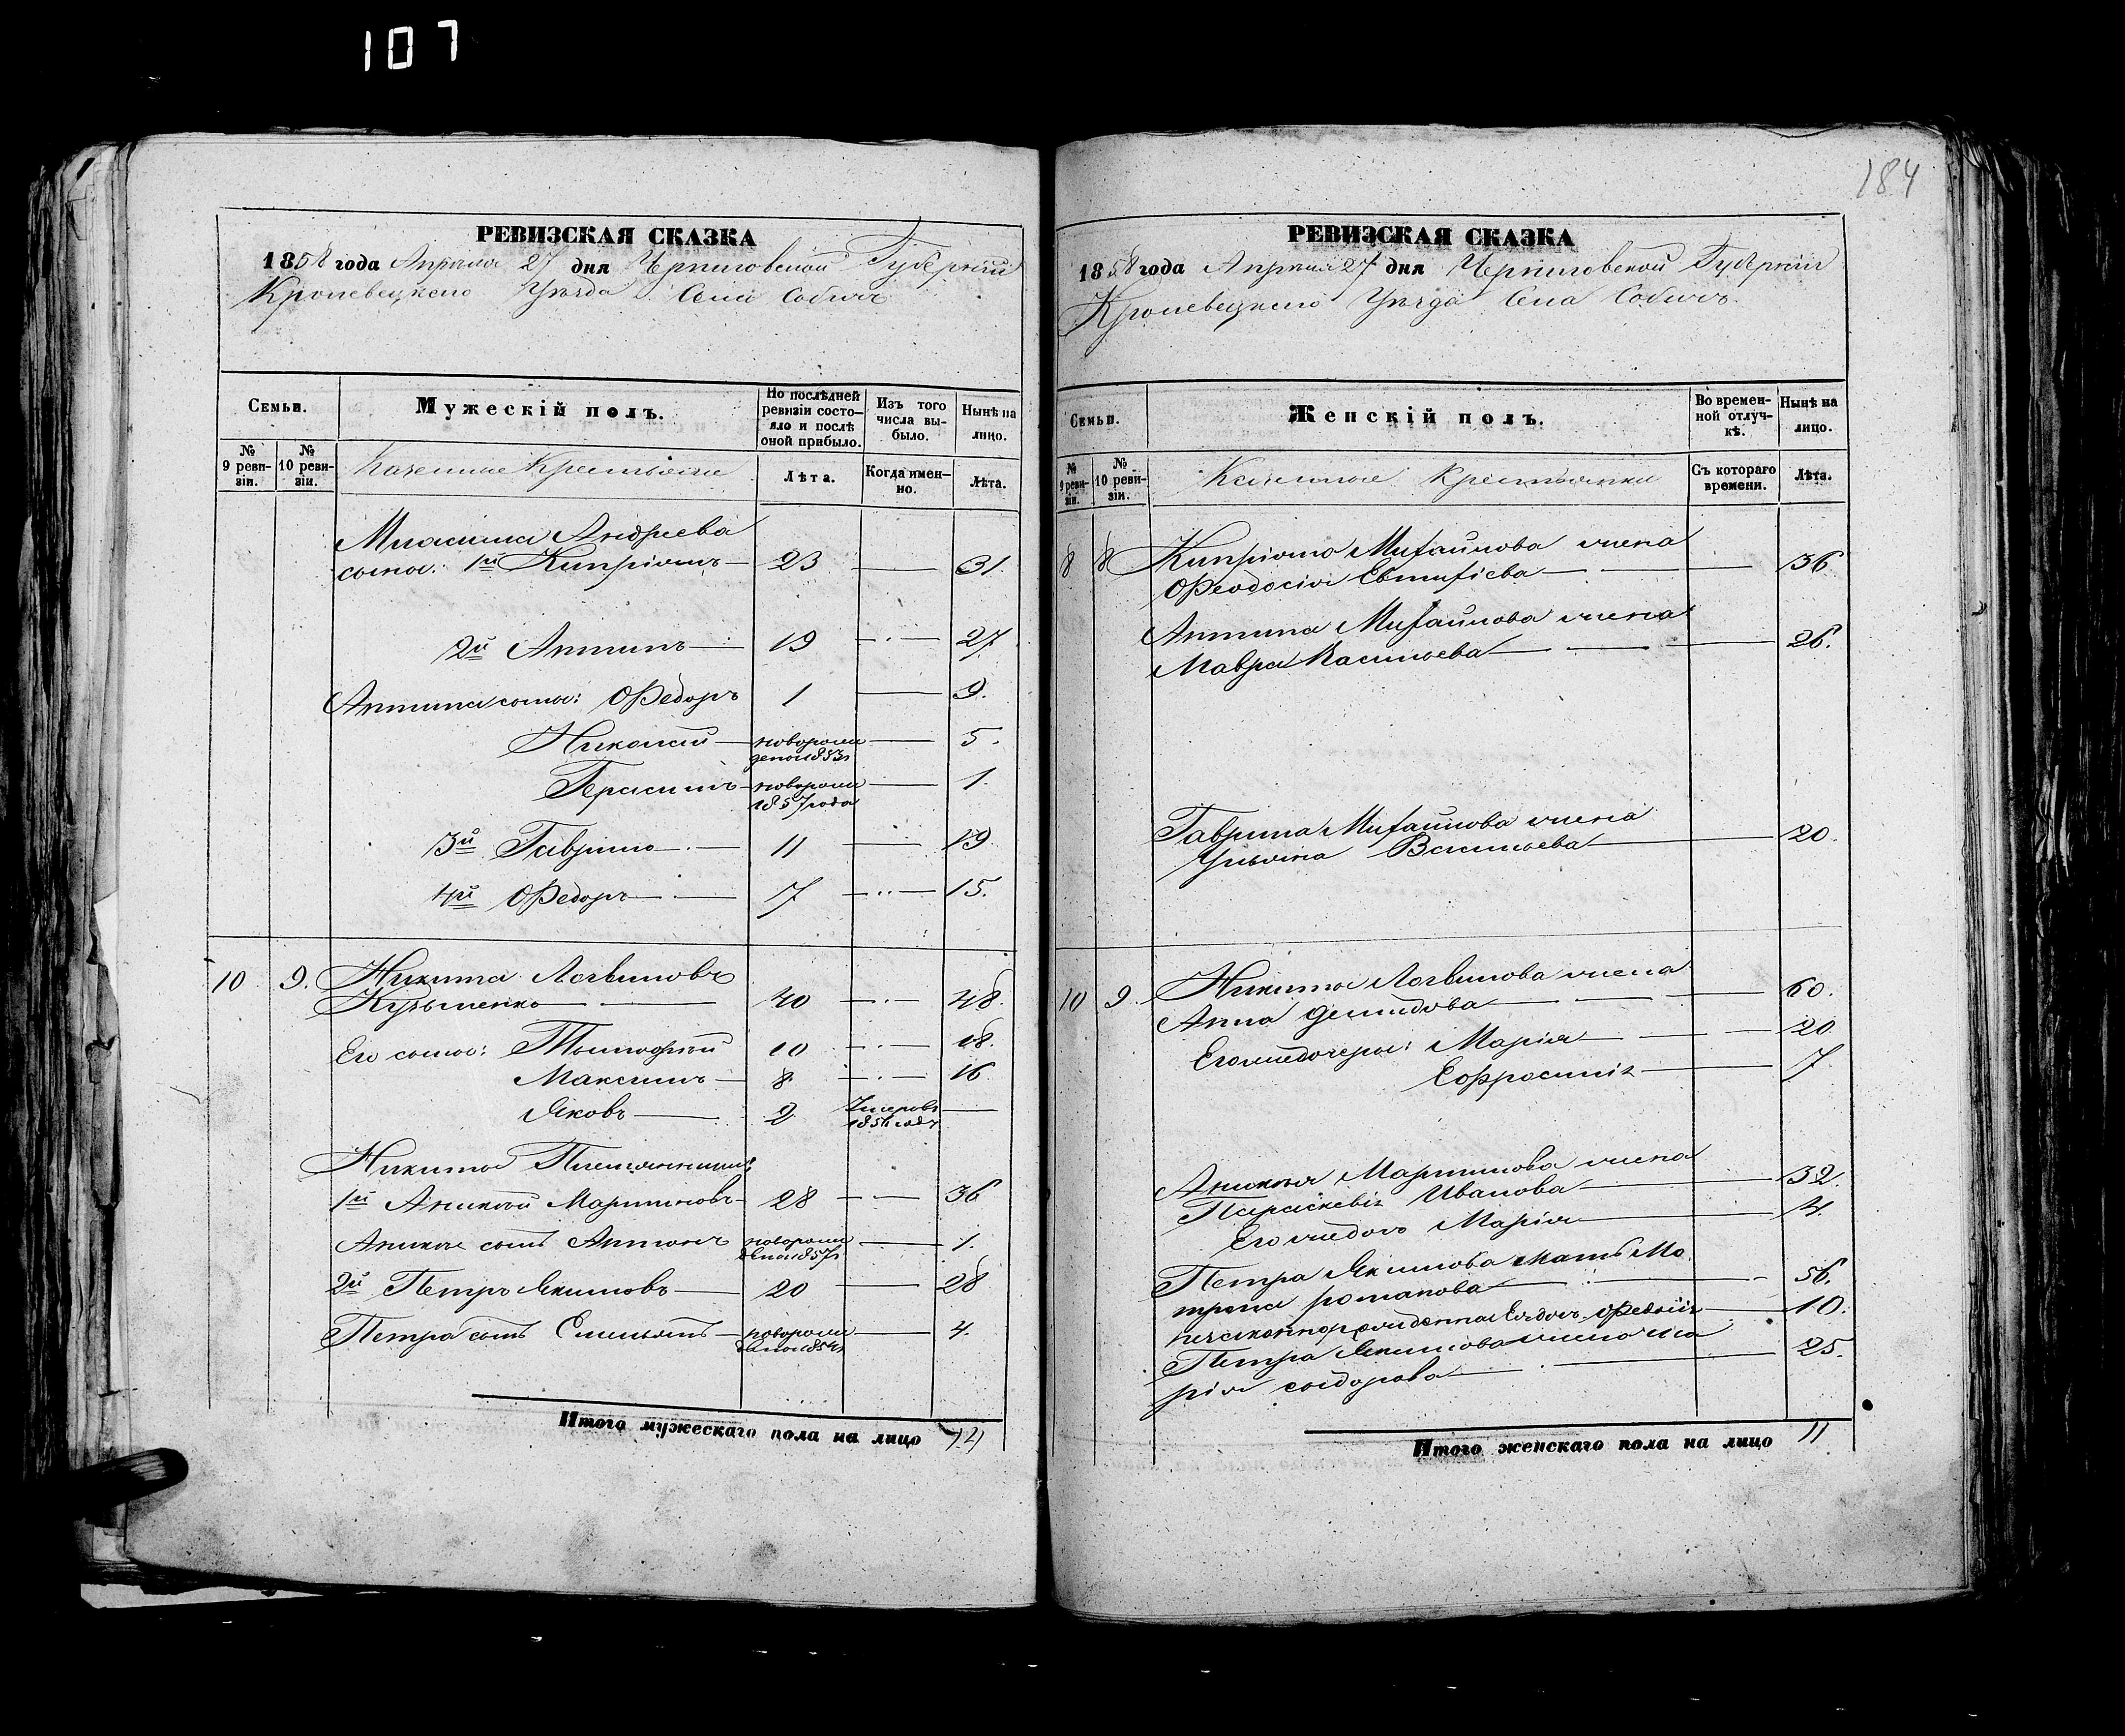 107
184
РЕВИЗСКАЯ СКАЗКА
1858 года Апреля 27 дня Черниговской Губерніи
Кролевецкаго Уезда Села Собичъ
Семьи.
Мужескій полъ.
По послѣдней ревизіи состояло и послѣ оной прибыло.
Изъ того числа выбыло.
Нынѣ на лицо.
№ 9 ревизіи.
№ 10 ревизіи.
Казенные Крестьяне
Лѣта.
Когда именно.
Лѣта.
Михаила Андреева
сыны: 1й Кипріянъ 23 31.
2й Антипъ 19 27
Антипа сыны: Федоръ 1 9.
Николай новорожденъ 1853 5.
Герасимъ новорож 1857 года 1.
3й Гаврило 11 19
4й Федоръ 7 15.
10 9. Никита Логвиновъ
Кузьменко 40 48.
Его сыны: Тимофей 10 18.
Максимъ 8 16.
Яковъ 2 Умеръ
Никиты Племянники:
1й Аникій Мартиновъ 28 36
Аникія сынъ Антонъ новорожденъ 1857 1.
2й Петръ Якимовъ 20 28
Петра сынъ Емельянъ новорожденъ 1854 4.
Итого мужескаго пола на лицо 14
РЕВИЗСКАЯ СКАЗКА
1858 года Апреля 27 дня Черниговской Губерніи
Кролевецкаго Уезда Села Собичъ
Семьи.
Женскій полъ.
Во временной отлучкѣ.
Нынѣ на лицо.
№ 9 ревизіи.
№ 10 ревизіи.
Казенные Крестьянки
Съ котораго времени.
Лѣта.
8 8 Кипріяна Михайлова жена
Феодосія Евтифіева 36
Антипа Михайлова жена
Мавра Васильева 26.
Гаврила Михайлова жена
Ульяна Васильева 20.
10 9. Никиты Логвинова жена 60.
Анна Демидова
Его дочеры: Марія 20
Ефросинія 7
Аникія Мартинова жена
Параскевія Иванова 32.
Его дочь Марія 4.
Петра Якимова мать Ма
трона романова 56.
Ея дочь Федосія 10.
Петра Якимова жена Ма
рія сидорова 25.
Итого женскаго пола на лицо 11